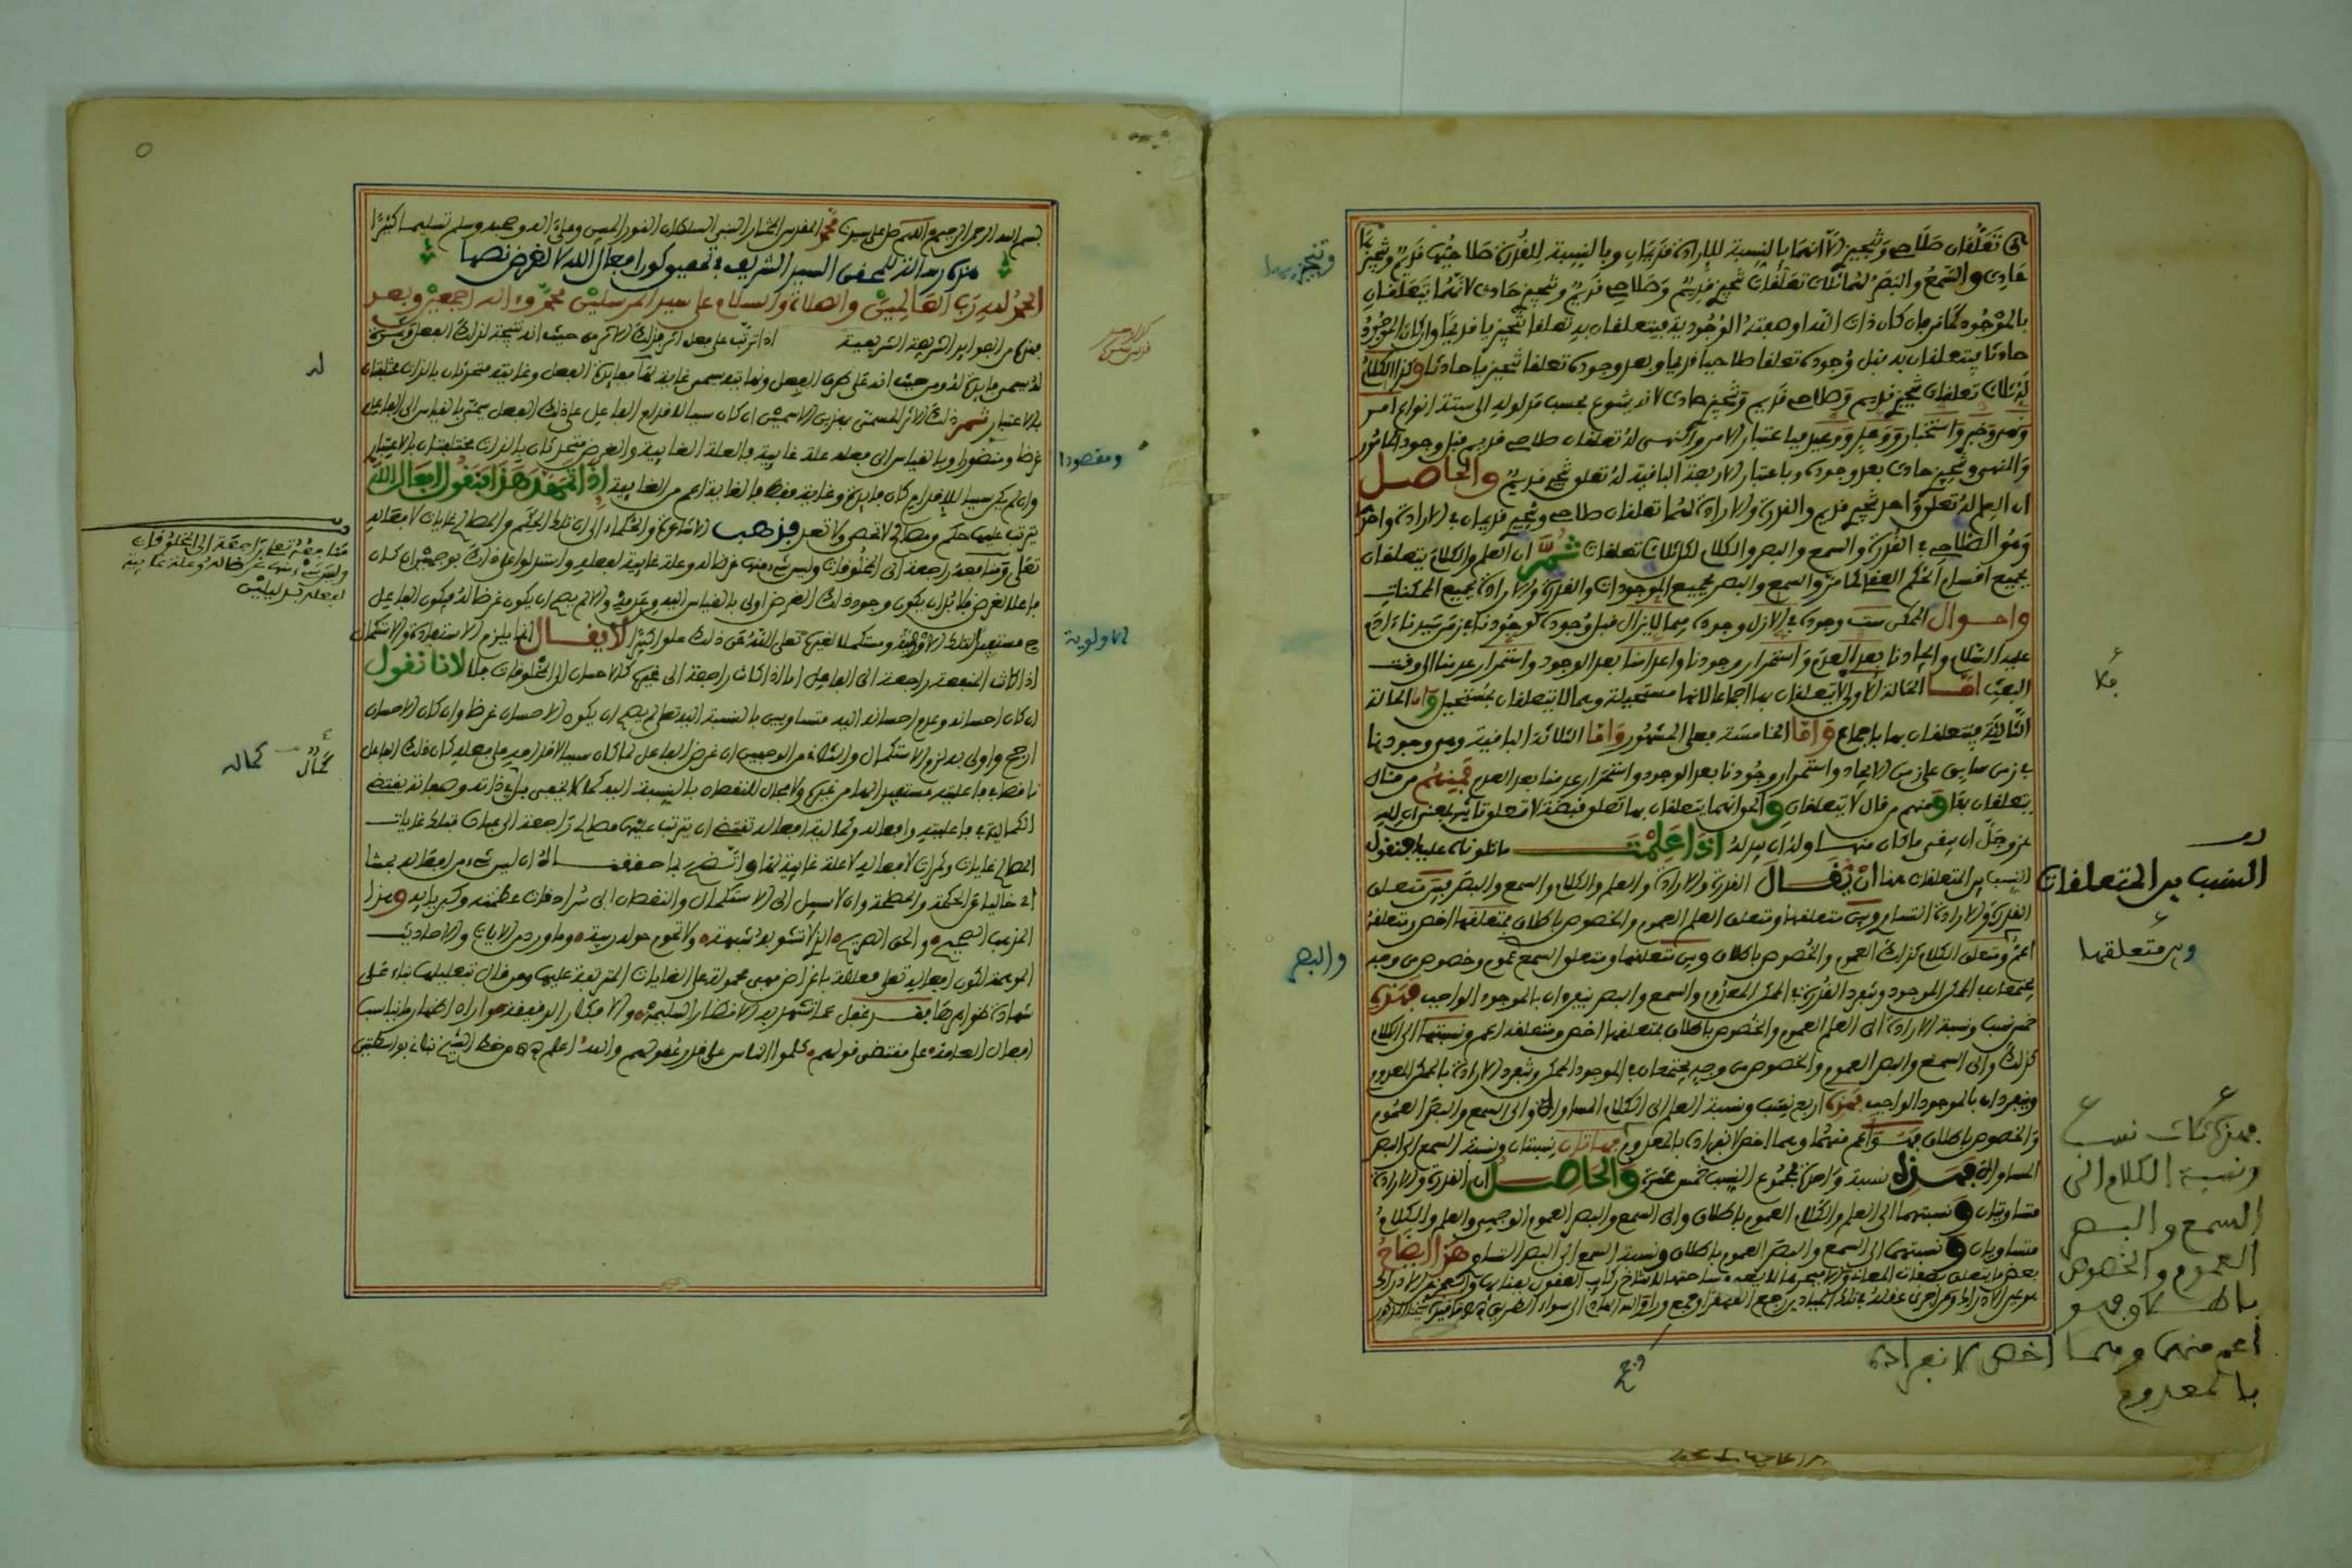 تعلقان صلاحي وتنجيزي لا انهما بالنسبة للارادة قديمان وبالنسبة للقدرة صلاحيها قديم وتنجيزيها
حادث والسمع والبصر لهما ثلاث تعلقات تنجيزي قديم وصلاحي قديم وتنجيزي حادث لانهما يتعلقان
بالموجود كما مر فان كان ذات الله او صفته الوجودية فيتعلقان به تعلقا تنجيزيا قديما وان كان الموجود
حادثا فيتعلقان به قبل وجوده تعلقا صلاحيا قديما وبعد وجوده تعلقا تنجيزيا حادثا وكذا الكلام
له ثلاث تعلقات تنجيزي قديم وصلاحي قديم وتنجيزي حادث لانه يتنوع بحسب مدلوله الى ستة انواع امر
ونهي وخبر واستخبار ووعد ووعيد فباعتبار الامر والنهي له تعلقان صلاحي قديم قبل وجود المامور
والمنهي وتنجيزي حادث بعد وجوده وباعتبار الاربعة الباقية له تعلق تنجيزي قديم والحاصل
ان العلم له تعلق واحد تنجيزي قديم والقدرة والارادة لهما تعلقان صلاحي وتنجيزي قديمان في الارادة واحدهما
وهو الصلاحي في القدرة والسمع والبصر والكلام لكل ثلاث تعلقات ثم ان العلم والكلام يتعلقان
بجميع اقسام الحكم العقلي كما مر والسمع والبصر بجميع الموجودات والقدرة والارادة بجميع الممكنات
واحوال الممكن ست وجوده في الازل وجوده فيما لا يزال قبل وجوده كوجودنا في زمن سيدنا ادم
عليه السلام وايجادنا بعد العدم واستمرار وجودنا واعدامنا بعد الوجود واستمرار عدمنا الى وقت
البعث اما الحالة الاولى لا يتعلقان بها اجماعا لانها مستحيلة وهما لا يتعلقان بمستحيل واما الحالة
الثالثة فيتعلقان بها باجماع واما الخامسة فعلى المشهور واما الثلاثة الباقية وهي وجودنا
في زمن سابق على زمن الايجاد واستمرار وجودنا بعد الوجود واستمرار عدمنا بعد العدم فمنهم من قال
يتعلقان بها ومنهم من قال لا يتعلقان والحق انهما يتعلقان بها تعلق قبضة لا تعلق تاثير بمعنى ان لله
عز وجل ان يبقي ما كان منها وله ان يبدله اذا علمت ما تلوناه عليك فنقول
النسب بين المتعلقات هنا ان يقال القدرة والارادة والعلم والكلام والسمع والبصر فبين متعلق
القدرة والارادة التساوي وبين متعلقهما ومتعلق العلم العموم والخصوص باطلاق فمتعلقهما اخص ومتعلقه
اعم ومتعلق الكلام كذلك العموم والخصوص باطلاق وبين متعلقهما ومتعلق السمع عموم وخصوص من وجه
يجتمعان في الممكن الموجود وتنفرد القدرة في الممكن المعدوم والسمع والبصر ينفردان بالموجود الواجب فهذه
خمس نسب ونسبة الارادة الى العلم العموم والخصوص باطلاق فمتعلقها اخص ومتعلقه اعم ونسبتها الى الكلام
كذلك والى السمع والبصر العموم والخصوص من وجه يجتمعان في الموجود الممكن وتنفرد الارادة بالممكن المعدوم
وينفردان بالموجود الواجب فهذه اربع نسب ونسبة العلم الى الكلام المساواة والى السمع والبصر العموم
والخصوص باطلاق فهو اعم منهما وهما اخص لانفراده بالمعدوم فهاتان نسبتان ونسبة السمع الى البصر
المساواة فهذه نسبة واحدة فمجموع النسب خمس عشرة والحاصل ان القدرة والارادة
متساويتان ونسبتهما الى العلم والكلام العموم باطلاق والى السمع والبصر العموم الوجهي والعلم والكلام
متساويان ونسبتهما الى السمع والبصر العموم باطلاق ونسبة السمع الى البصر التساوي هذا ايضاح
وتنجيزيها
النسب بين المتعلقات
وبين متعلقها
والبصر
فهذه ثلاث نسب
ونسبة الكلام الى
السمع والبصر
العموم والخصوص
باطلاق وهو
اعم منهما وهما اخص لانفراده
بالمعدوم
بسم الله الرحمن الرحيم اللهم صل على سيدنا محمد
هذه رسالة للمحقق السيد الشريف في تحقيق كون افعال الله لا لغرض نصها
الحمد لله رب العالمين والصلاة والسلام على سيد المرسلين محمد واله اجمعين وبعد
فهذه من الفوايد الشريفة الشريفية اذا ترتب على فعل اثر فذلك الاثر من حيث انه نتيجة لذلك الفعل وثمرة
له يسمى فايدة له ومن حيث انه على طرف الفعل ونهايته يسمى غاية له ففايدة الفعل وغايته متحدتان بالذات مختلفتان
بالاعتبار ثم ذلك الاثر المسمى بهذين الاسمين ان كان سببا لاقدام الفاعل على ذلك الفعل يسمى بالقياس الى الفاعل
غرضا ومقصودا وبالقياس الى فعله علة غاية فالعلة الغاية والغرض متحدان بالذات مختلفان بالاعتبار
وان لم يكن سببا للاقدام كان فايدة وغاية فقط فالغاية اعم من الغاية اذا تمهد هذا فنقول افعال الله
يترتب عليها حكم ومصالح لا تحصى ولا تعد فذهب الاشاعرة والحكماء الى ان تلك الحكم والمصالح غايات لافعاله
تعلى ومنافعه راجعة الى المخلوقات وليس شيء منها غرضا له وعلة غاية لفعله واستدلوا على ذلك بوجهين ان كان
فاعلا لغرض فلا بد ان يكون وجود ذلك الغرض اولى بالقياس اليه وعدمه والا لم يصح ان يكون غرضا له فيكون الفاعل
ح مستفيدا لتلك الاولوية ومستكملا بغيره تعلى الله عن ذلك علوا كبيرا لا يقال انما يلزم الاستفادة والاستكمال
اذا كانت المنفعة راجعة الى الفاعل اما اذا كانت راجعة الى غيره كالاحسان الى المخلوقات فلا لانا نقول
ان كان احسانه وعدم احسانه اليه متساويين بالنسبة اليه تعلى لم يصح ان يكون الاحسان غرضا وان كان الاحسان
ارجح واولى به لزم الاستكمال والثاني من الوجهين ان غرض الفاعل لما كان سببا لاقدامه على فعله كان ذلك الفاعل
ناقصا في فاعليته مستفيدا لها من غيره ولا مجال للنقصان بالنسبة اليه كما لا يخفى بل ذاته وصفاته يقتضي
الكمالية في فاعليته وافعاله وكمالية افعاله تقتضي ان يترتب عليها مصالح راجعة الى عباده فتلك غايات
المصالح غايات وثمرات لافعاله لا علة غاية لها واتضح بما حققناه ان ليس شيء من افعاله عبثا
اي خاليا عن الحكمة والمصلحة وان لا سبيل الى الاستكمال والنقصان الى سرادقات عظمته وكبريايه وهذا
المذهب الصحيح والحق الصريح الذي لا تشوبه شبهة ولا تحوم حوله ريبة وما ورد من الايات والاحاديث
الموهمة لكون افعاله تعلى معللة باغراض فهي محمولة على الغايات المترتبة عليها ومن قال بتعليلها بناء على
شهادة ظواهرها فقد غفل عما تشهد به الانظار الصحيحة والافكار الدقيقة او اراد اظهار ما يناسب
افهام العامة على مقتضى قولهم كلموا الناس على قدر عقولهم والله اعلم
ومقصودا
له
منافعه تعلى راجعة الى المخلوقات
وليس شيء منها غرضا له وعلة غاية
لفعله
الاولوية
كماله
كمال